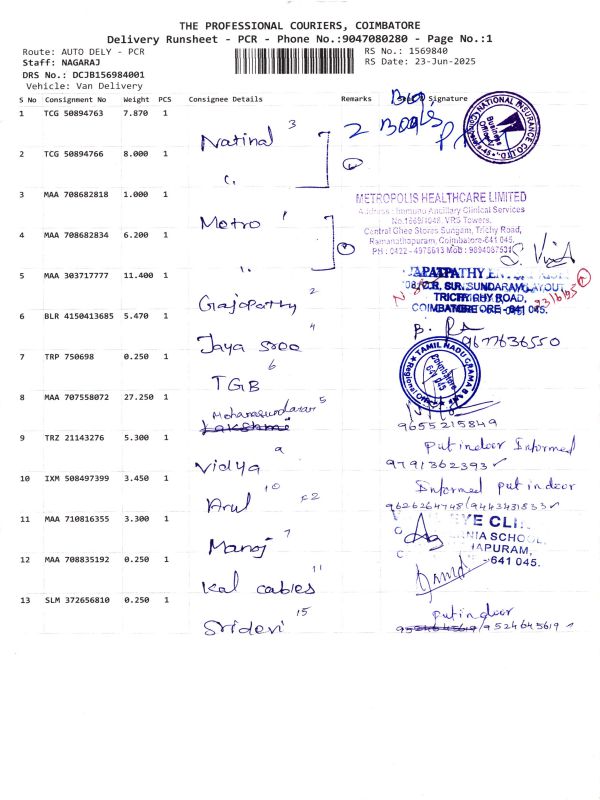 THE PROFESSIONAL COURIERS, COIMBATORE
Delivery Runsheet - PCR - Phone No.:9047080280 - Page No.:1
Route: AUTO DELY - PCR RS No.: 1569840
Staff: NAGARAJ RS Date: 23-Jun-2025
DRS No.: DCJB156984001
Vehicle: Van Delivery
S No Consignment No Weight PCS Consignee Details Remarks Signature
1 TCG 50894763 7.870 1 Natinal 3 2 Bags
NATIONAL INSURANCE CO. LTD.
Business Office
2 TCG 50894766 8.000 1
3 MAA 708682818 1.000 1 Metro
METROPOLIS HEALTHCARE LIMITED
Ancillary Clinical Services
VRS Towers,
Central Ghee Stores Sungam, Trichy Road,
Ramanathapuram, Coimbatore-641 045.
4 MAA 708682834 6.200 1
5 MAA 303717777 11.400 1 Gajapathy 2
SUNDARAM LAYOUT
6 BLR 4150413685 5.470 1 Jaya Sree 4
9677636550
7 TRP 750698 0.250 1 TGB 6
TAMIL NADU GRAMA
Coimbatore
641 045
8 MAA 707558072 27.250 1 Mohanasundaram 5
Lakshmi
9655215849
9 TRZ 21143276 5.300 1 Vidya 9 Put indoor Informed
9791362393 ✓
10 IXM 508497399 3.450 1 Arul 10 Informed put indoor
11 MAA 710816355 3.300 1 Manoj 7
EYE CLI
NIA SCHOOL
APURAM,
-641 045.
12 MAA 708835192 0.250 1 Kal cables 11
13 SLM 372656810 0.250 1 Sridevi 15 Put indoor
9524645619